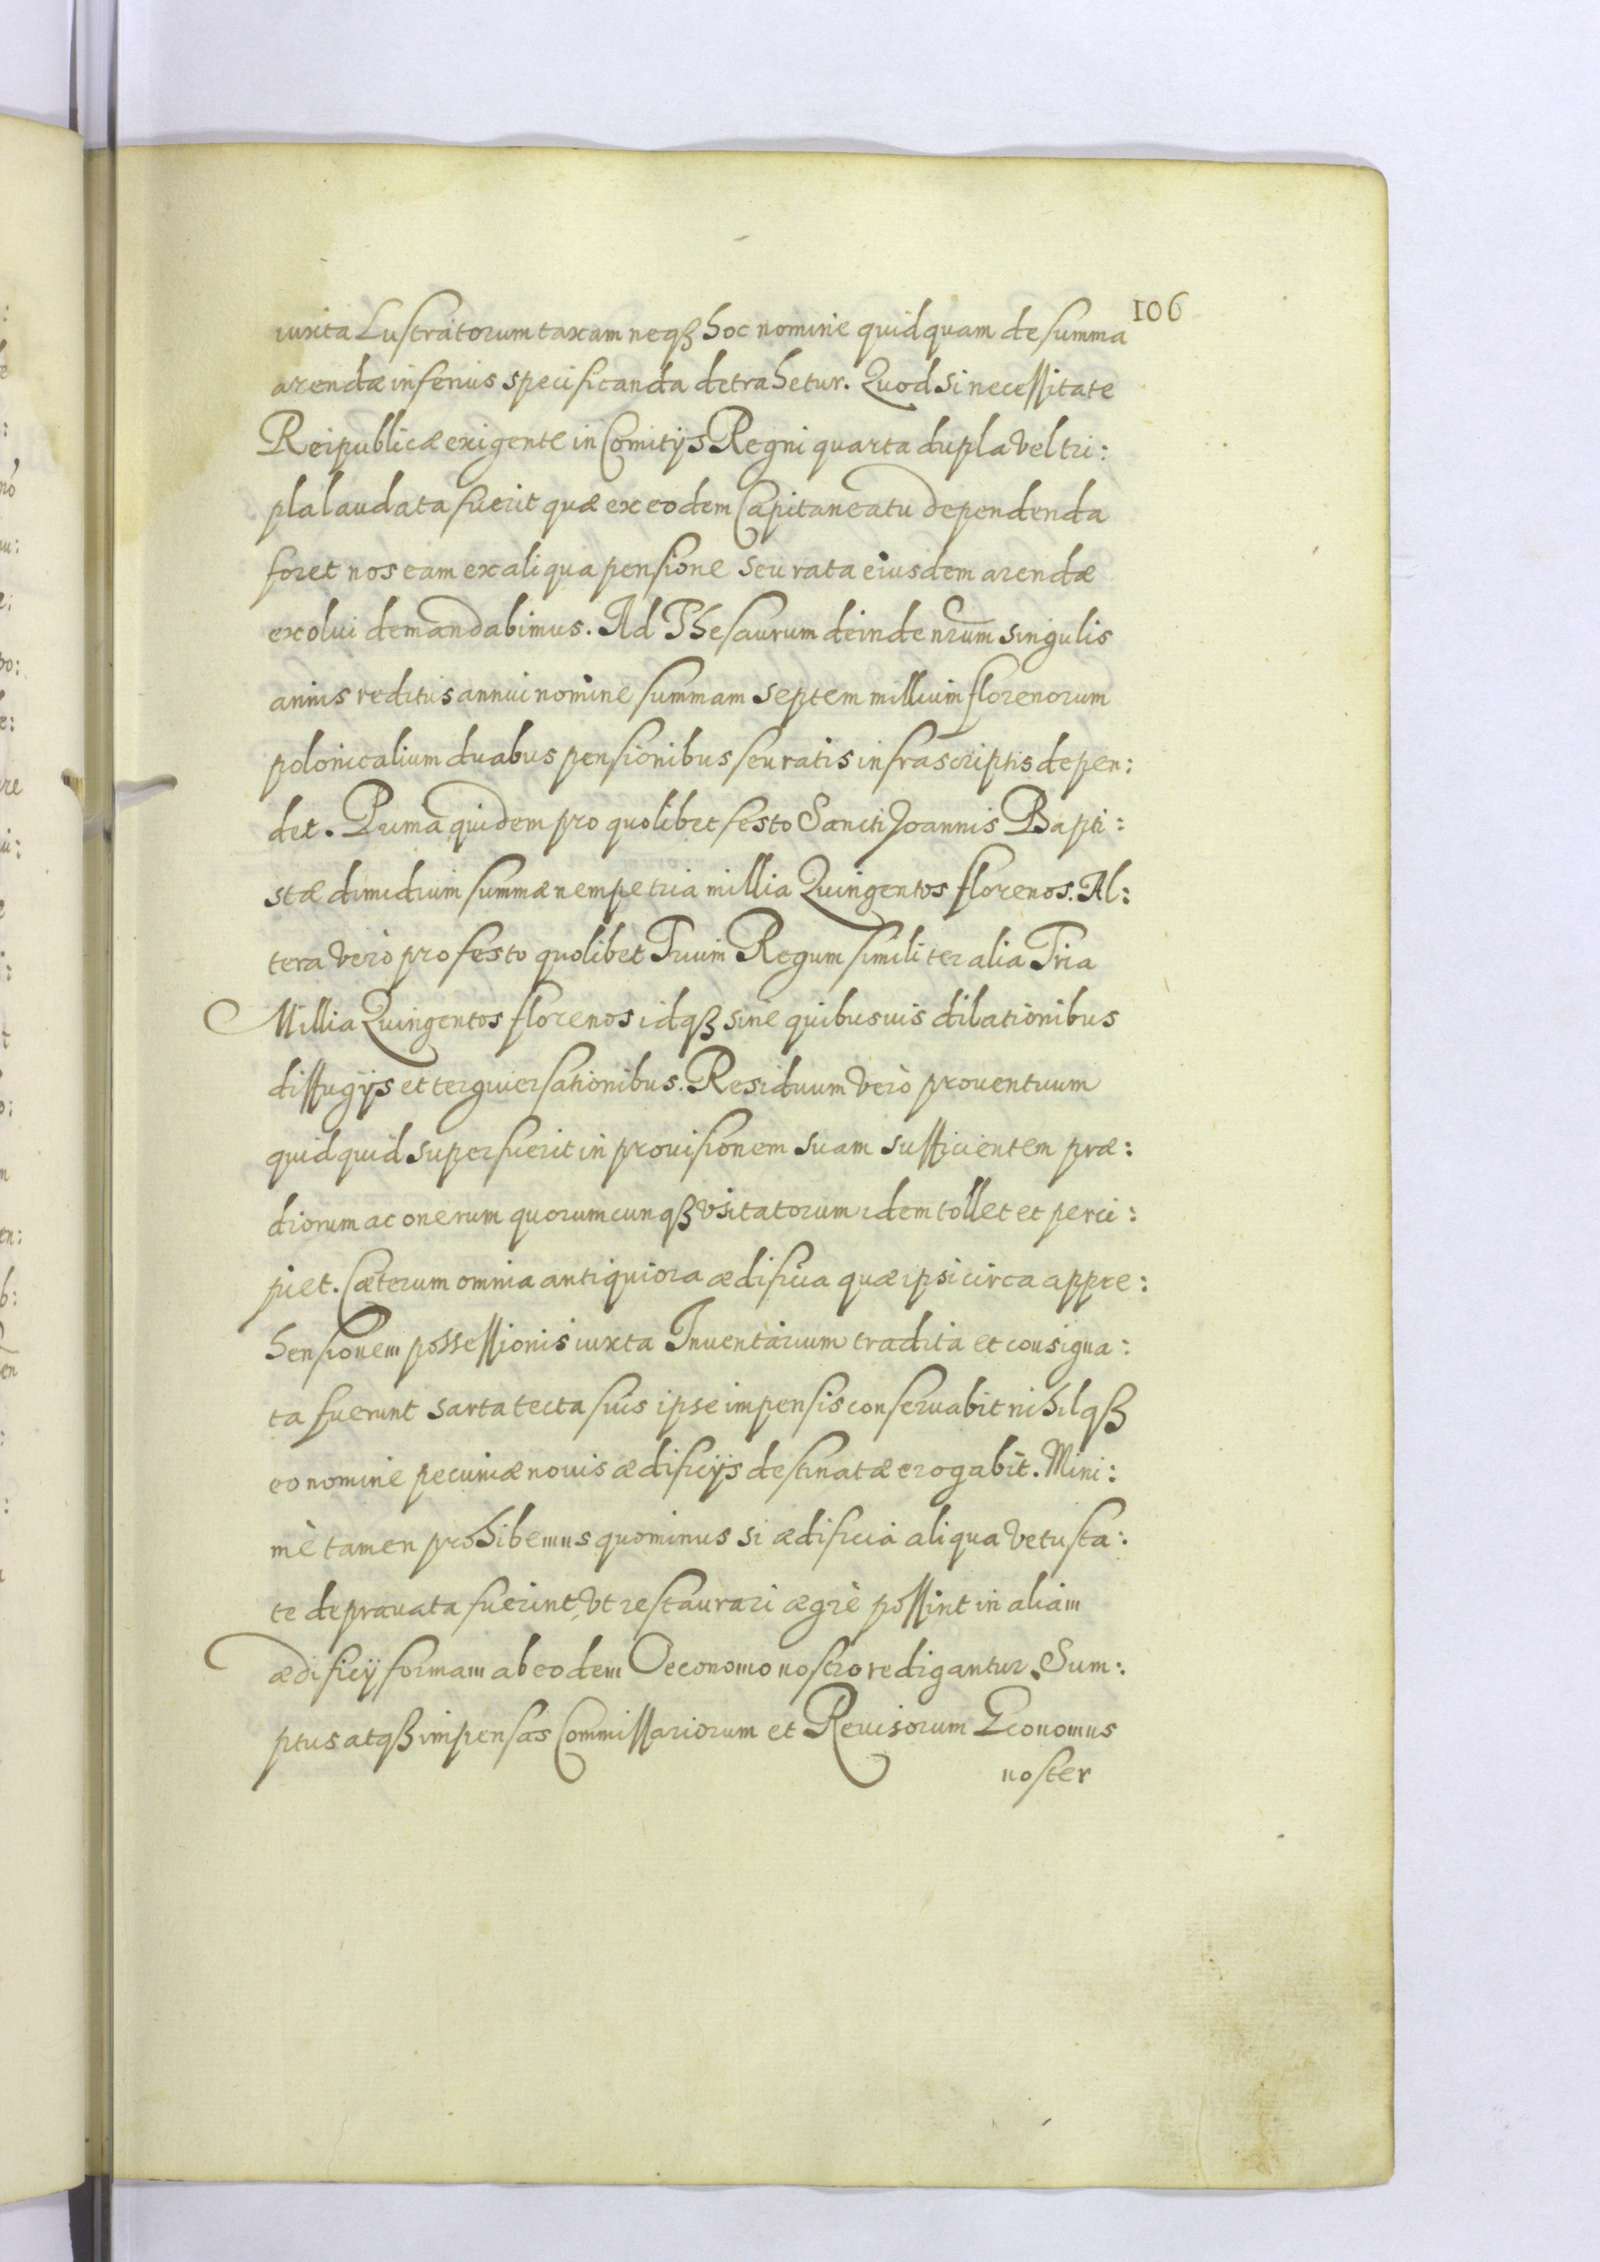 106
iuxta Lustratorum taxam neqß hoc nomine quidquam de summa
arendæ inferius specificanda detrahetur. Quod si necessitate
Reipublicæ exigente in Comitijs Regni quarta dupla vel tri:
pla laudata fuerit quæ ex eodem Capitaneatu dependenda
foret nos eam ex aliqua pensione seu rata eiusdem arendæ
exolui demandabimus. Ad Thesaurum deinde nrum singulis
annis reditus annui nomine summam septem millium florenorum
polonicalium duabus pensionibus seu ratis infrascriptis depen:
det. Prima quidem pro quolibet festo Sancti Joannis Bapti:
stæ dimidium summæ nempe tria millia Quingentos florenos. Al:
tera verò pro festo quolibet Trium Regum similiter alia Tria
Millia Quingentos florenos idqß sine quibusuis dilationibus
diffugijs et tergiuersationibus. Residuum verò prouentuum
quidquid superfuerit in prouisionem suam sufficientem præ:
diorum ac onerum quorumcunqß vsitatorum idem tollet et perci:
piet. Cæterum omnia antiquiora ædificia quæ ipsi circa appre:
hensionem possessionis iuxta Inuentarium tradita et consigna:
ta fuerunt sarta tecta suis ipse impensis conseruabit nihilqß
eo nomine pecuniæ nouis ædificijs destinatæ erogabit. Mini:
mè tamen prohibemus quominus si ædificia aliqua vetusta:
te deprauata fuerint, vt restaurari ægrè possint in aliam
ædificij formam ab eodem Oeconomo nostro redigantur. Sum:
ptus atqß impensas Commissariorum et Reuisorum Economus
noster